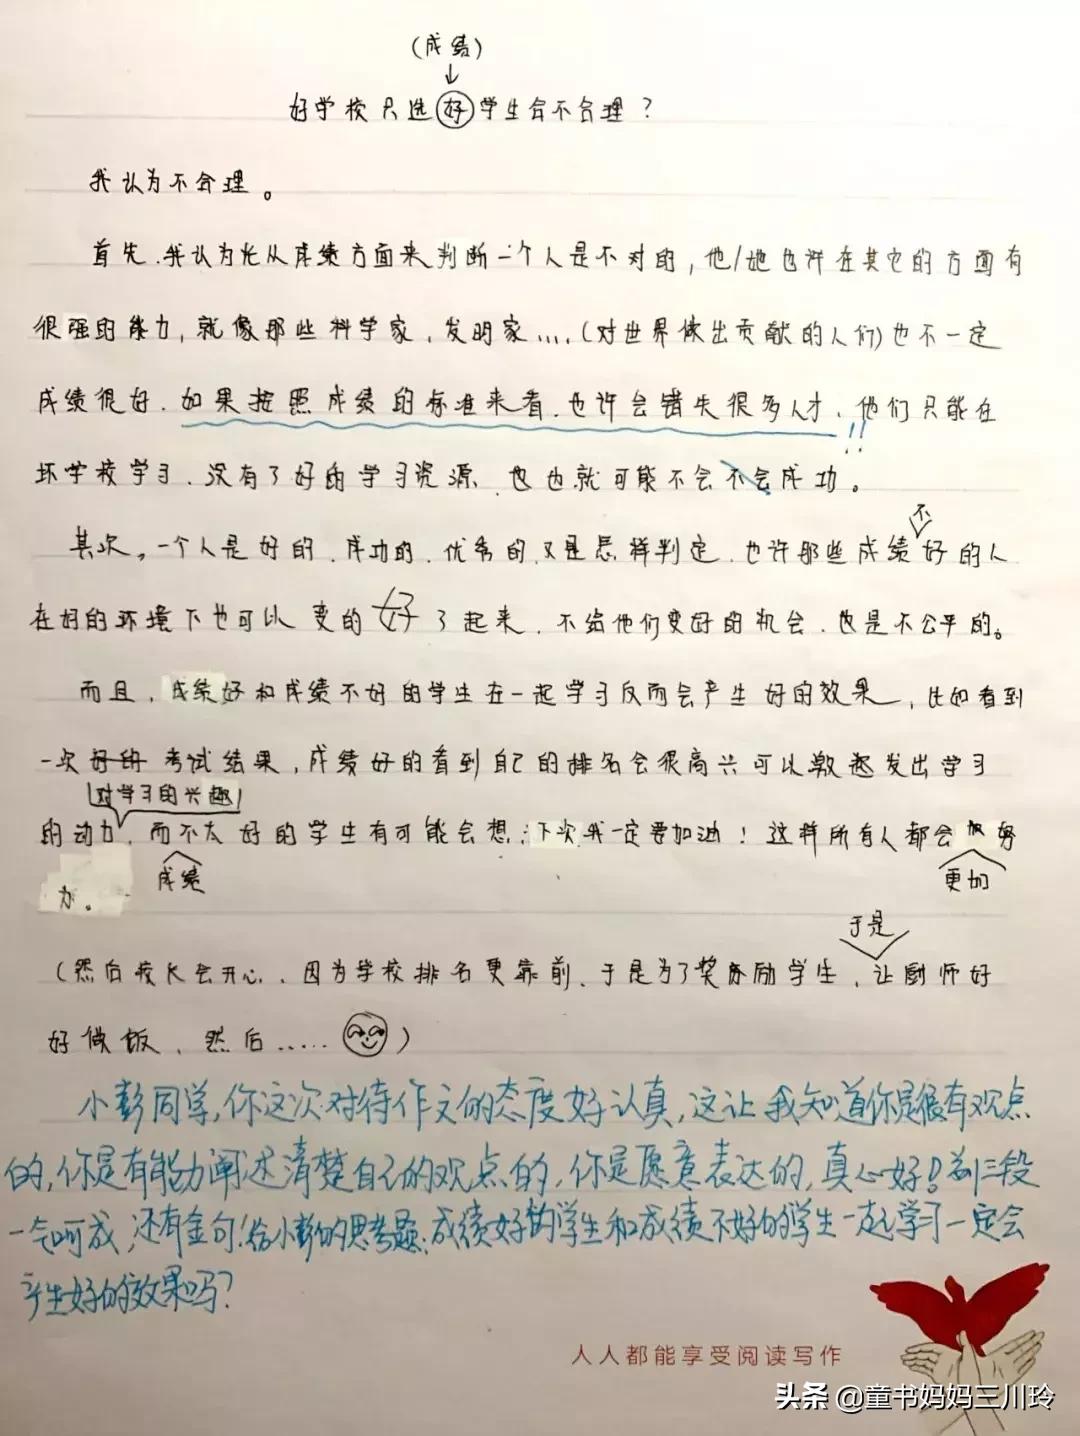 (成绩)
好学校只选好学生合不合理？
我认为不合理。
首先.我认为光从成绩方面来判断一个人是不对的,他/她也许在其它的方面有
很强的能力,就像那些科学家,发明家....(对世界做出贡献的人们)也不一定
成绩很好.如果按照成绩的标准来看.也许会错失很多人才.他们只能在
!!
坏学校学习.没有了好的学习资源.也也就可能不会不会成功。
不
其次。一个人是好的.成功的.优秀的.又是怎样判定.也许那些成绩好的人
在好的环境下也可以变的好了起来.不给他们变好的机会.也是不公平的。
而且,成绩好和成绩不好的学生在一起学习反而会产生好的效果,比如看到
一次好的考试结果,成绩好的看到自己的排名会很高兴可以激起发出学习
对学习的兴趣
的动力,而不太好的学生有可能会想:下次我一定要加油!这样所有人都会努
成绩
更加
力。
于是
(然后校长会开心.因为学校排名更靠前.于是为了奖励学生,让厨师好
好做饭、然后......)
小彭同学,你这次对待作文的态度好认真,这让我知道你是很有观点
的,你是有能力阐述清楚自己的观点的,你是愿意表达的,真心好!前三段
一气呵成,还有金句!给小彭的思考题:成绩好的学生和成绩不好的学生一起学习一定会
产生好的效果吗?
人人都能享受阅读写作
头条 @童书妈妈三川玲